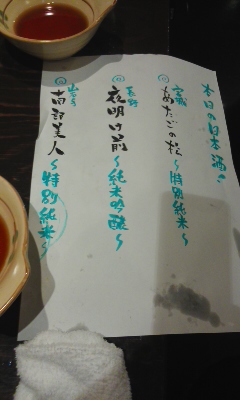 本日の日本酒
宮城
あたごの松
〜特別純米〜
長野
夜明け前
〜純米吟醸〜
岩手
南部美人
〜特別純米〜